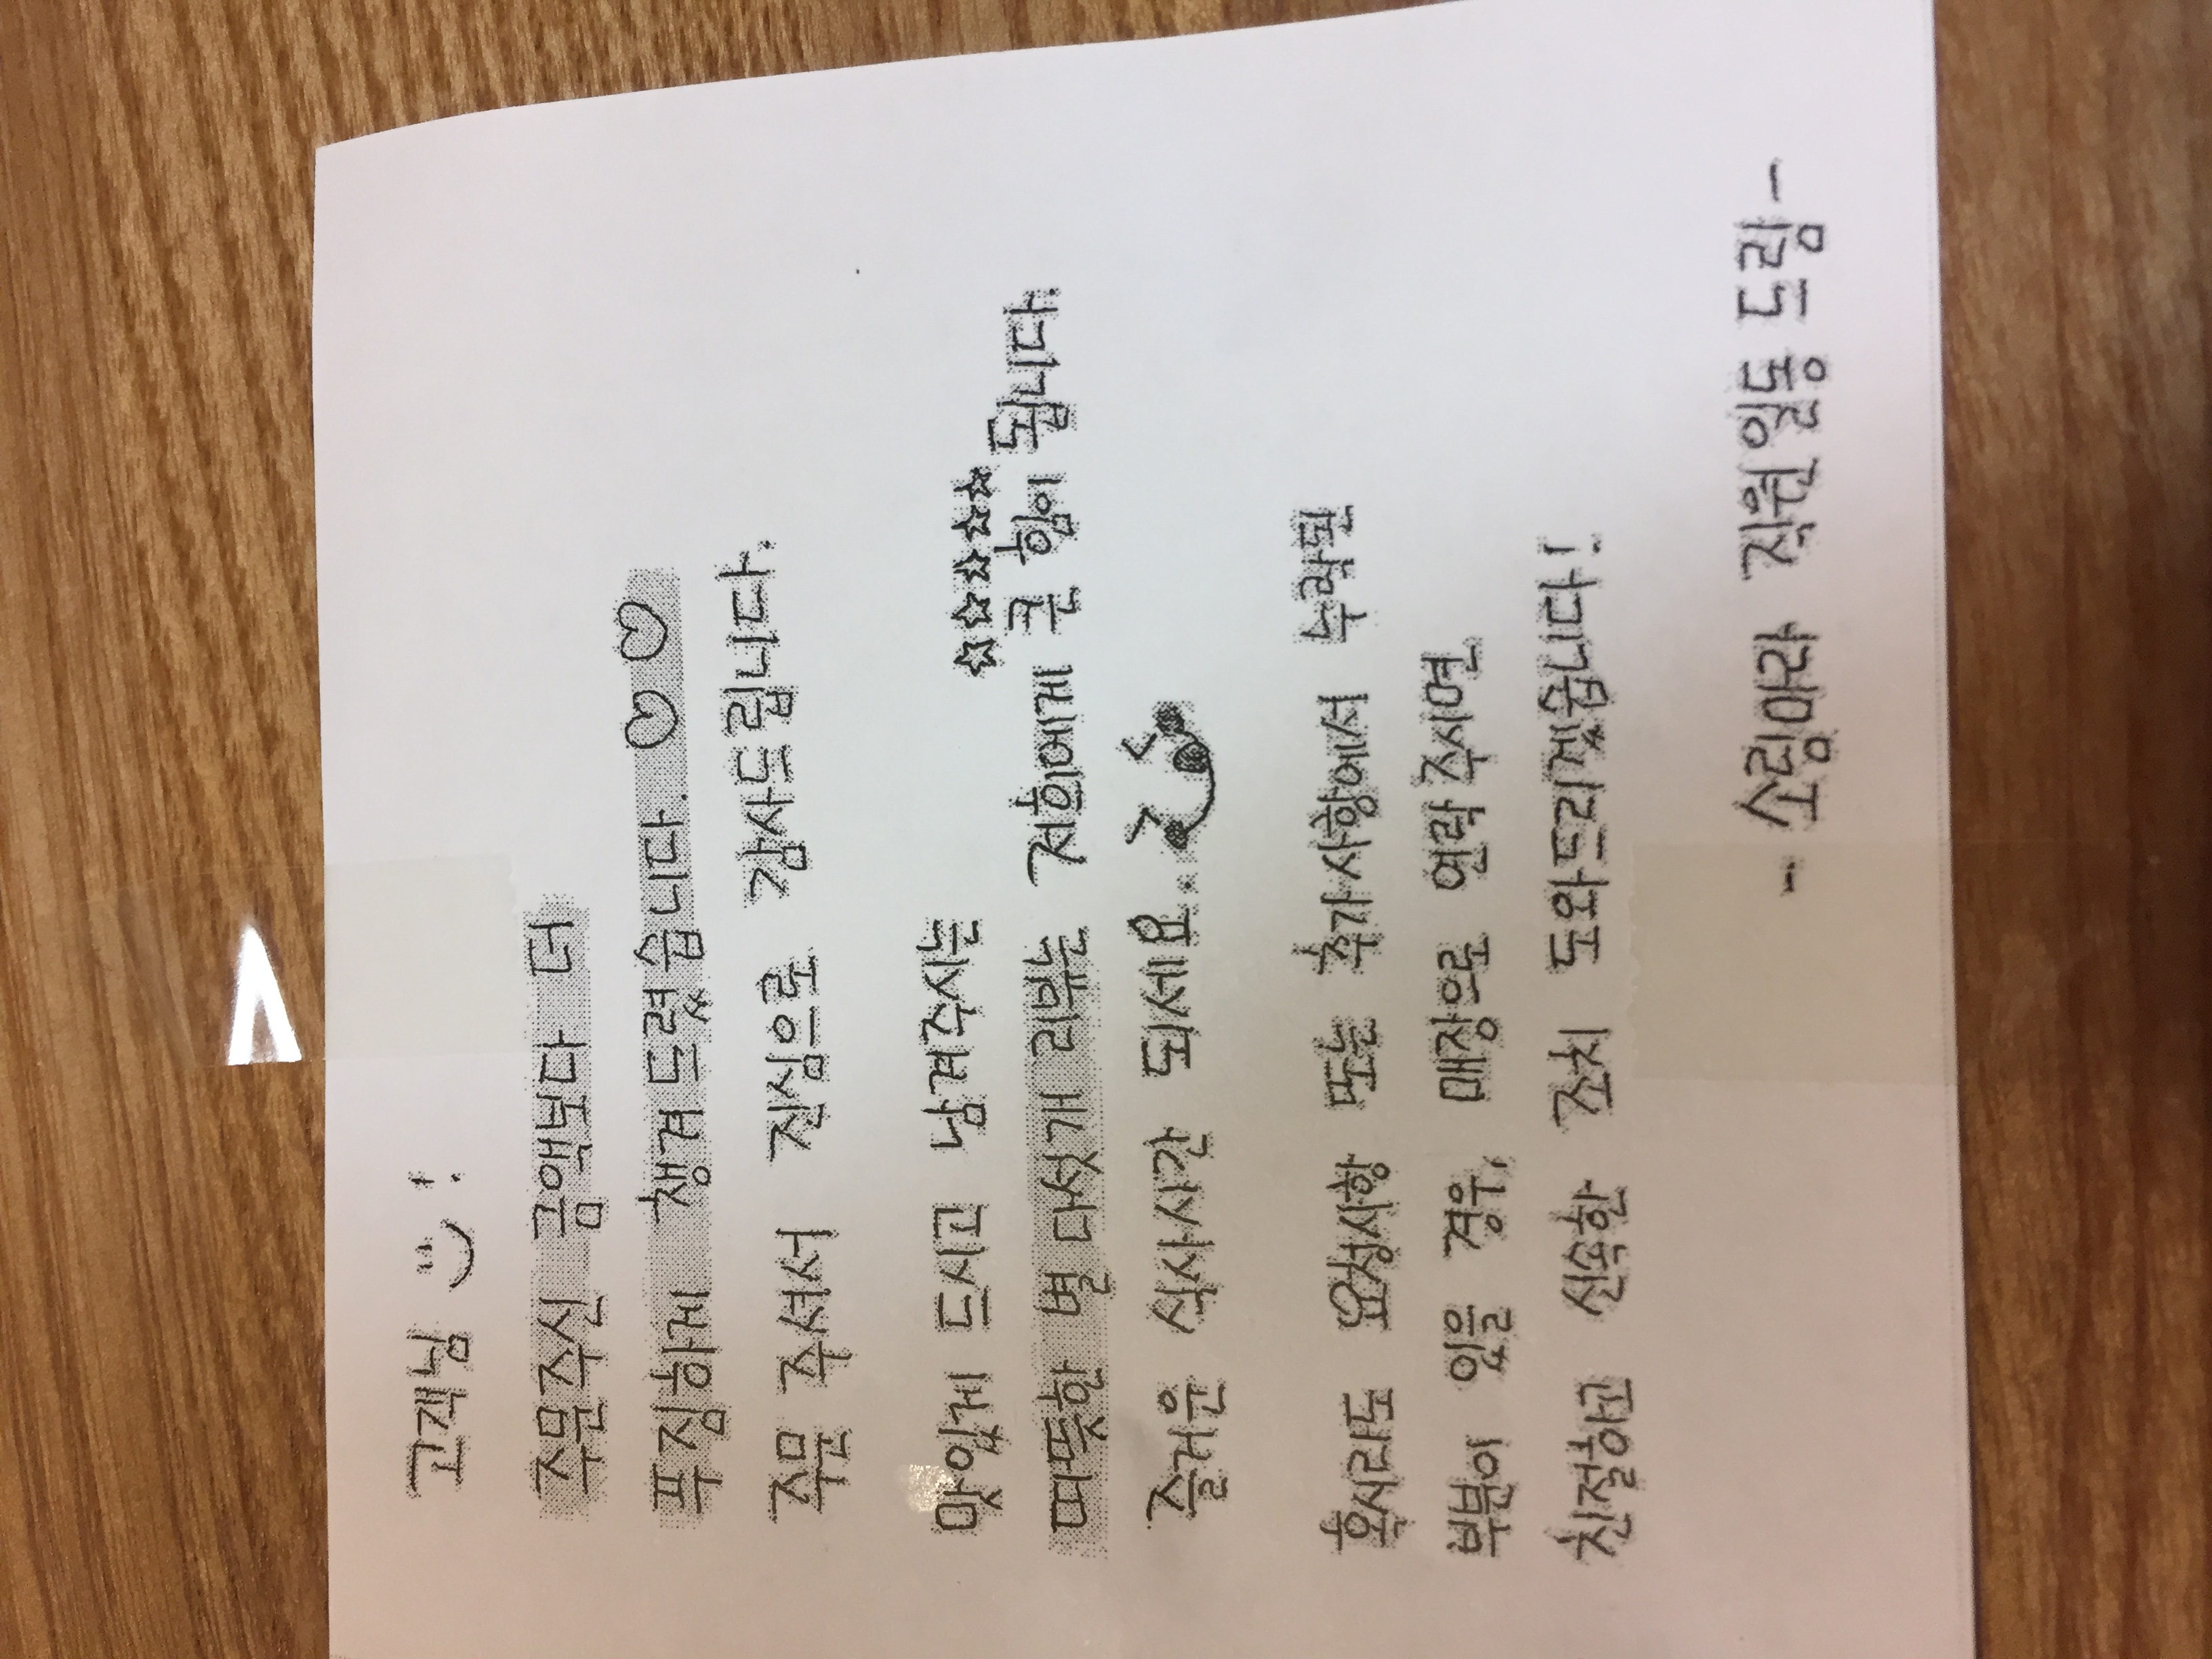 고객님 :) !
주문주신 금액보다 더
푸짐하게 챙겨 드렸습니다. ♡♡
주문 주셔서 진심으로 감사드립니다.
맛있게 드시고 남겨주시는 ☆☆☆☆☆
따뜻한 별 다섯개 리뷰는 저희에게 큰 힘이 됩니다.
즐거운 식사시간 되세요..
혹시라도 요청사항 또는 추가사항에서 누락된
부분이 있을 경우, 매장으로 연락 주시면
친절하고 신속한 조치 도와드리겠습니다!
- 소림마라 직원일동 드림 -